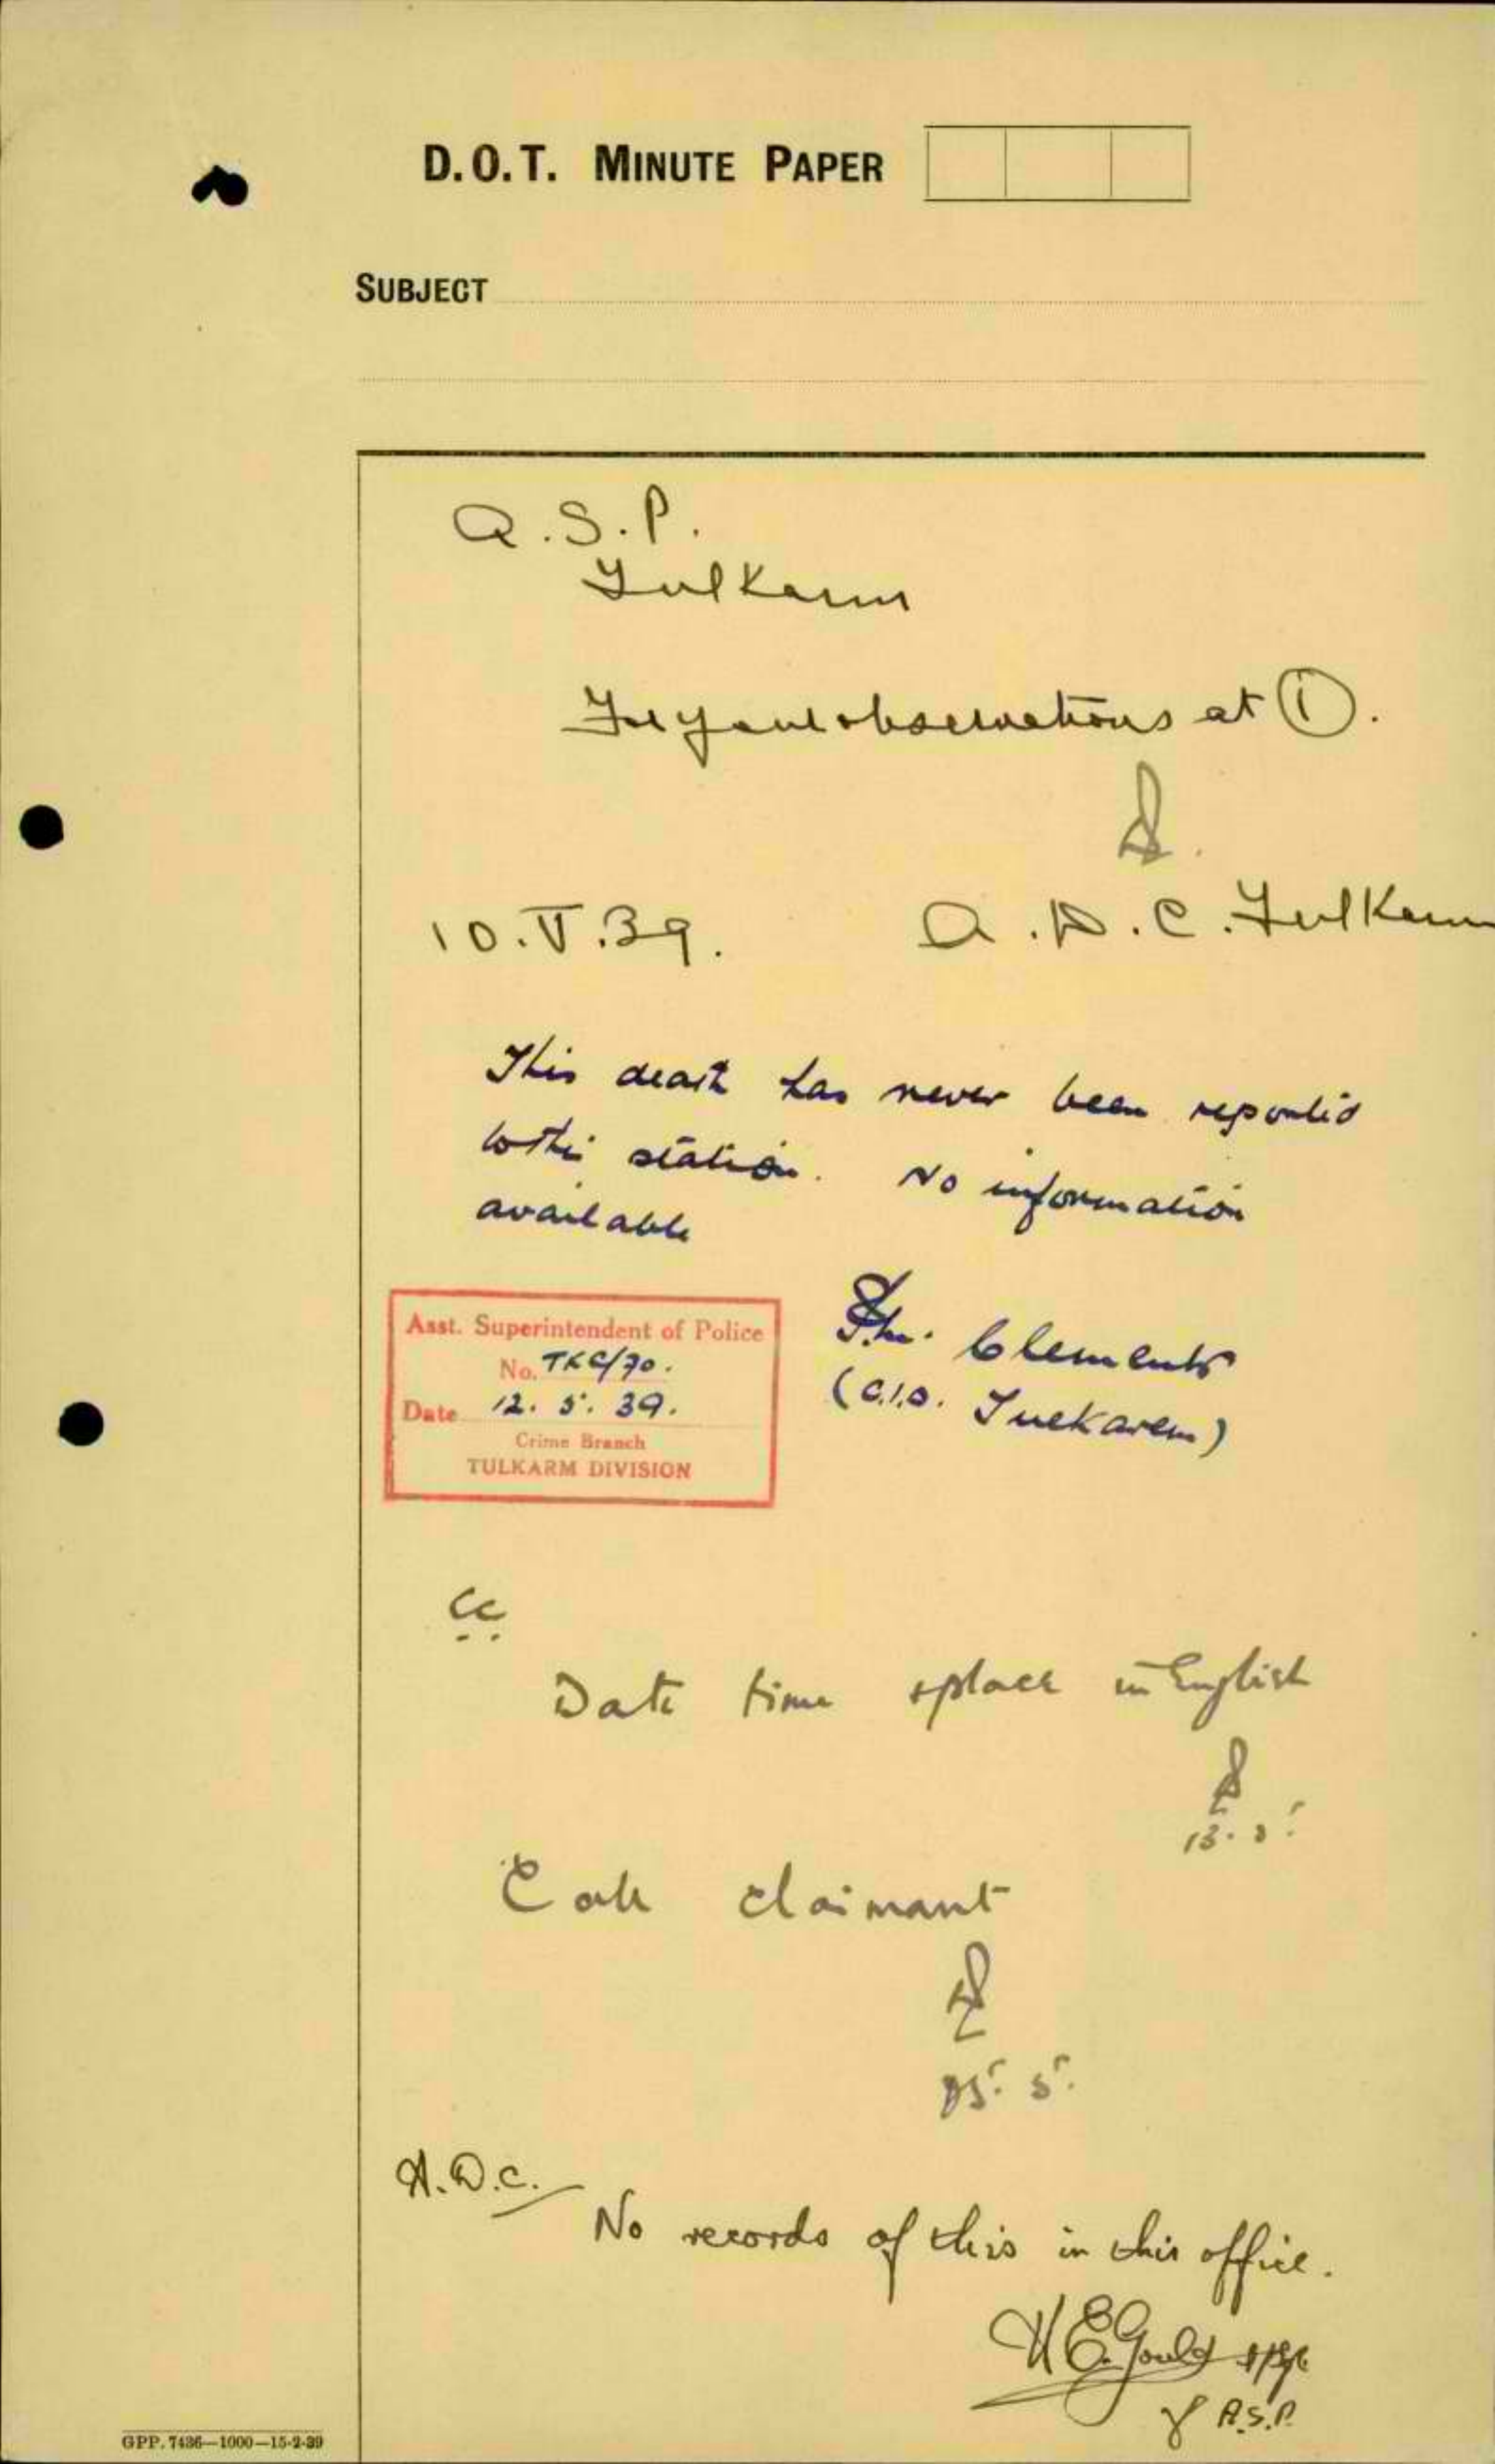 D.O.T. MINUTE PAPER
SUBJECT
A.S.P.
Tulkarm
For your observations at 1.
10.V.39. A.D.C. Tulkarm
This death has never been reported
to this station. No information
available
Clements
(C.I.D. Tulkarem)
Asst. Superintendent of Police
No. TKC/70.
Date 12. 5. 39.
Crime Branch
TULKARM DIVISION
CC
Date time & place in English
Call claimant
A.D.C.
No records of this in this office.
H E Gould
f A.S.P.
GPP. 7436—1000—15-2-39